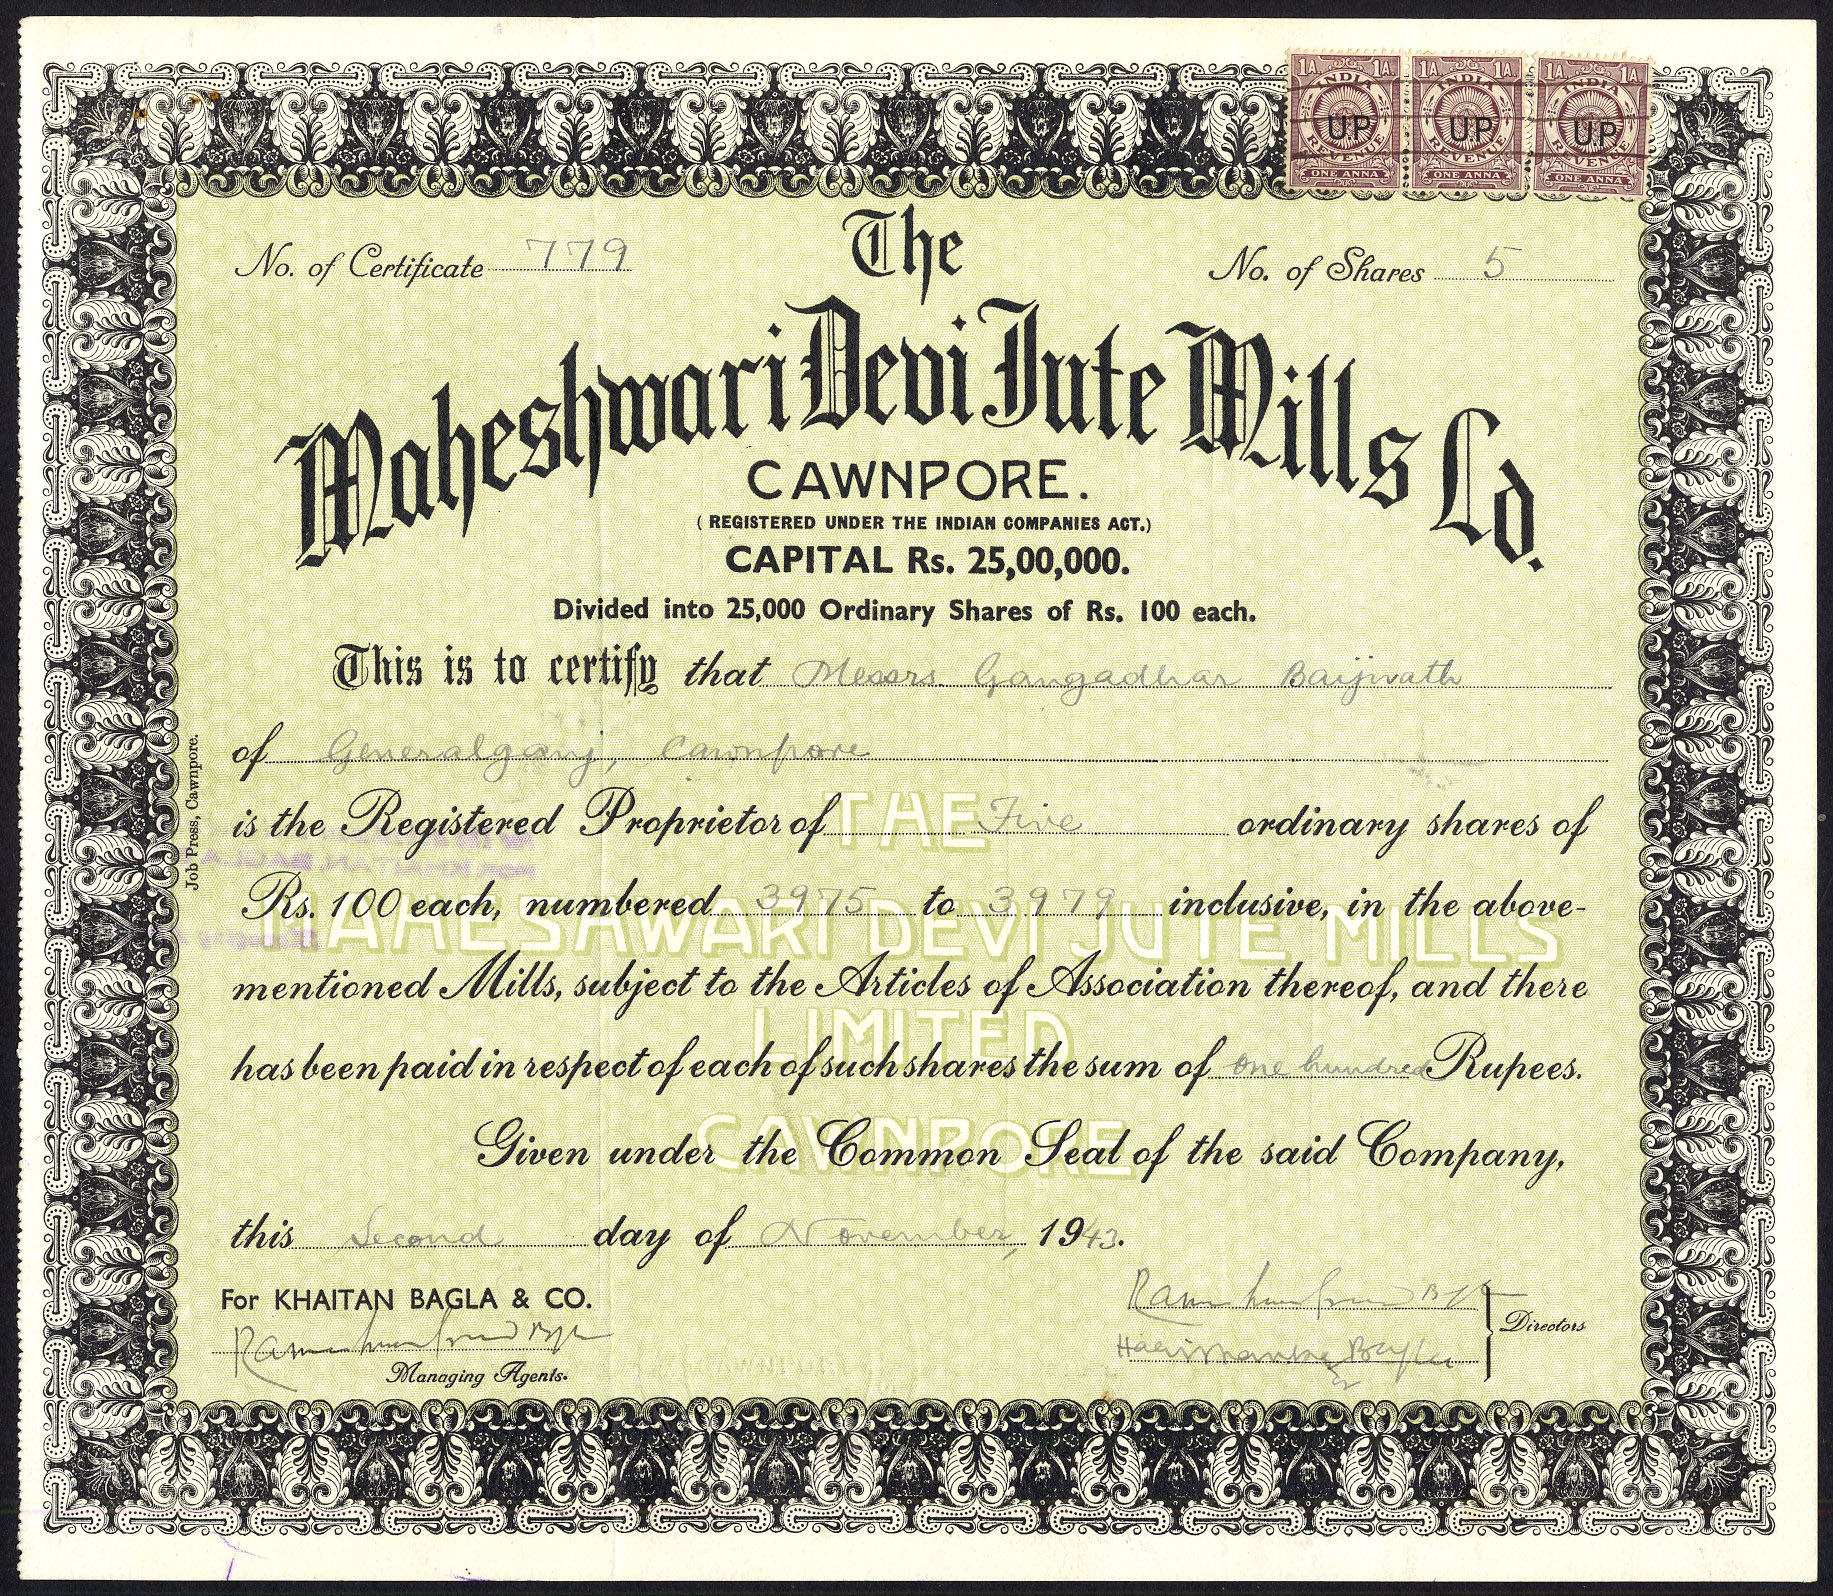 1A. 1A. 1A. 1A. 1A. 1A.
INDIA INDIA INDIA
U.P U.P U.P
REVENUE REVENUE REVENUE
ONE ANNA ONE ANNA ONE ANNA
No. of Certificate 779
The
No. of Shares 5
Maheshwari Devi Jute Mills Ld.
CAWNPORE.
(REGISTERED UNDER THE INDIAN COMPANIES ACT.)
CAPITAL Rs. 25,00,000.
Divided into 25,000 Ordinary Shares of Rs. 100 each.
This is to certify that Messrs Gangadhar Baijnath
of Generalganj, Cawnpore
is the Registered Proprietor of Five ordinary shares of
Rs. 100 each, numbered 3975 to 3979 inclusive, in the above-
mentioned Mills, subject to the Articles of Association thereof, and there
has been paid in respect of each of such shares the sum of one hundred Rupees.
Given under the Common Seal of the said Company,
this Second day of November, 1943.
For KHAITAN BAGLA & CO.
Managing Agents.
Directors
Job Press, Cawnpore.
THE
MAHESHWARI DEVI JUTE MILLS
LIMITED
CAWNPORE